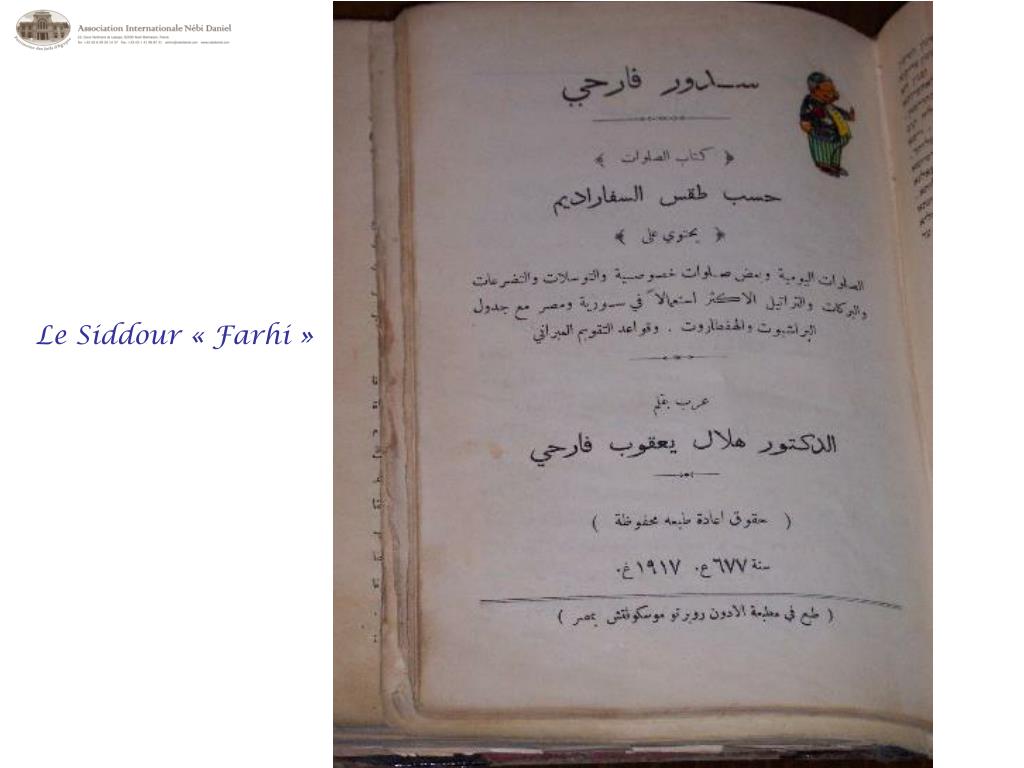 Association Internationale Nébi Daniel
Le Siddour « Farhi »
سدور فارحي
﴿ كتاب الصلوات ﴾
حسب طقس السفاراديم
﴿ يحتوي على ﴾
الصلوات اليومية وبعض صلوات خصوصية والتوسلات والتضرعات
والبركات والتراتيل الاكثر استعمالاً في سورية ومصر مع جدول
البراشيوت والهفطاروت . وقواعد التقويم العبراني
عرب بقلم
الدكتور هلال يعقوب فارحي
( حقوق اعادة طبعه محفوظة )
سنة ٦٧٧ ع. ١٩١٧ غ.
( طبع في مطبعة الادون روبرتو موسكوفتش بمصر )